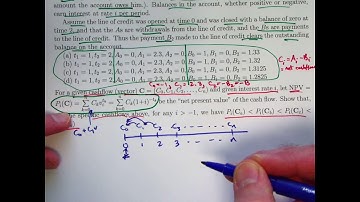 amount the account owes him.) Balances in the account, whether positive or negative,
earn interest at rate i per period.
Assume the line of credit was opened at time 0 and was closed with a balance of zero at
time 2, and that the As are withdrawals from the line of credit, and the Bs are payments
to the line of credit. Thus the payment B₂ must clean the outstanding
balance on the account.
(a) t₁ = 1, t₂ = 2, A₀ = 0, A₁ = 2.3, A₂ = 0, B₀ = 1, B₁ = 0, B₂ = 1.33
t₁ = 1, t₂ = 2, A₀ = 0, A₁ = 2.3, A₂ = 0, B₀ = 1, B₁ = 0, B₂ = 1.32
t₁ = 1, t₂ = 2, A₀ = 0, A₁ = 2.3, A₂ = 0, B₀ = 1, B₁ = 0, B₂ = 1.3125
(d) t₁ = 1, t₂ = 2, A₀ = 0, A₁ = 2.3, A₂ = 0, B₀ = 1, B₁ = 0, B₂ = 1.2825
Cᵢ = Aᵢ - Bᵢ
= net cashflow
For a given cashflow (vector) C = and given interest rate i, let NPV =
Pᵢ(C) = be the "net present value" of the cash flow. Show that,
the specific cashflows above, for any i > −1, we have
C₀ C₁ C₂ C₃ Cₙ
0 1 2 3 n